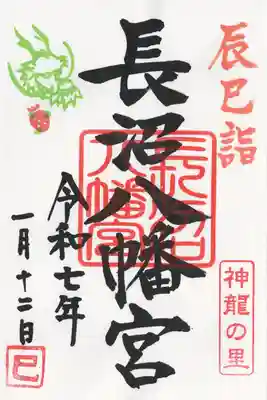 辰巳詣
長沼八幡宮
長沼八幡宮
令和七年
一月十二日
巳
神龍の里